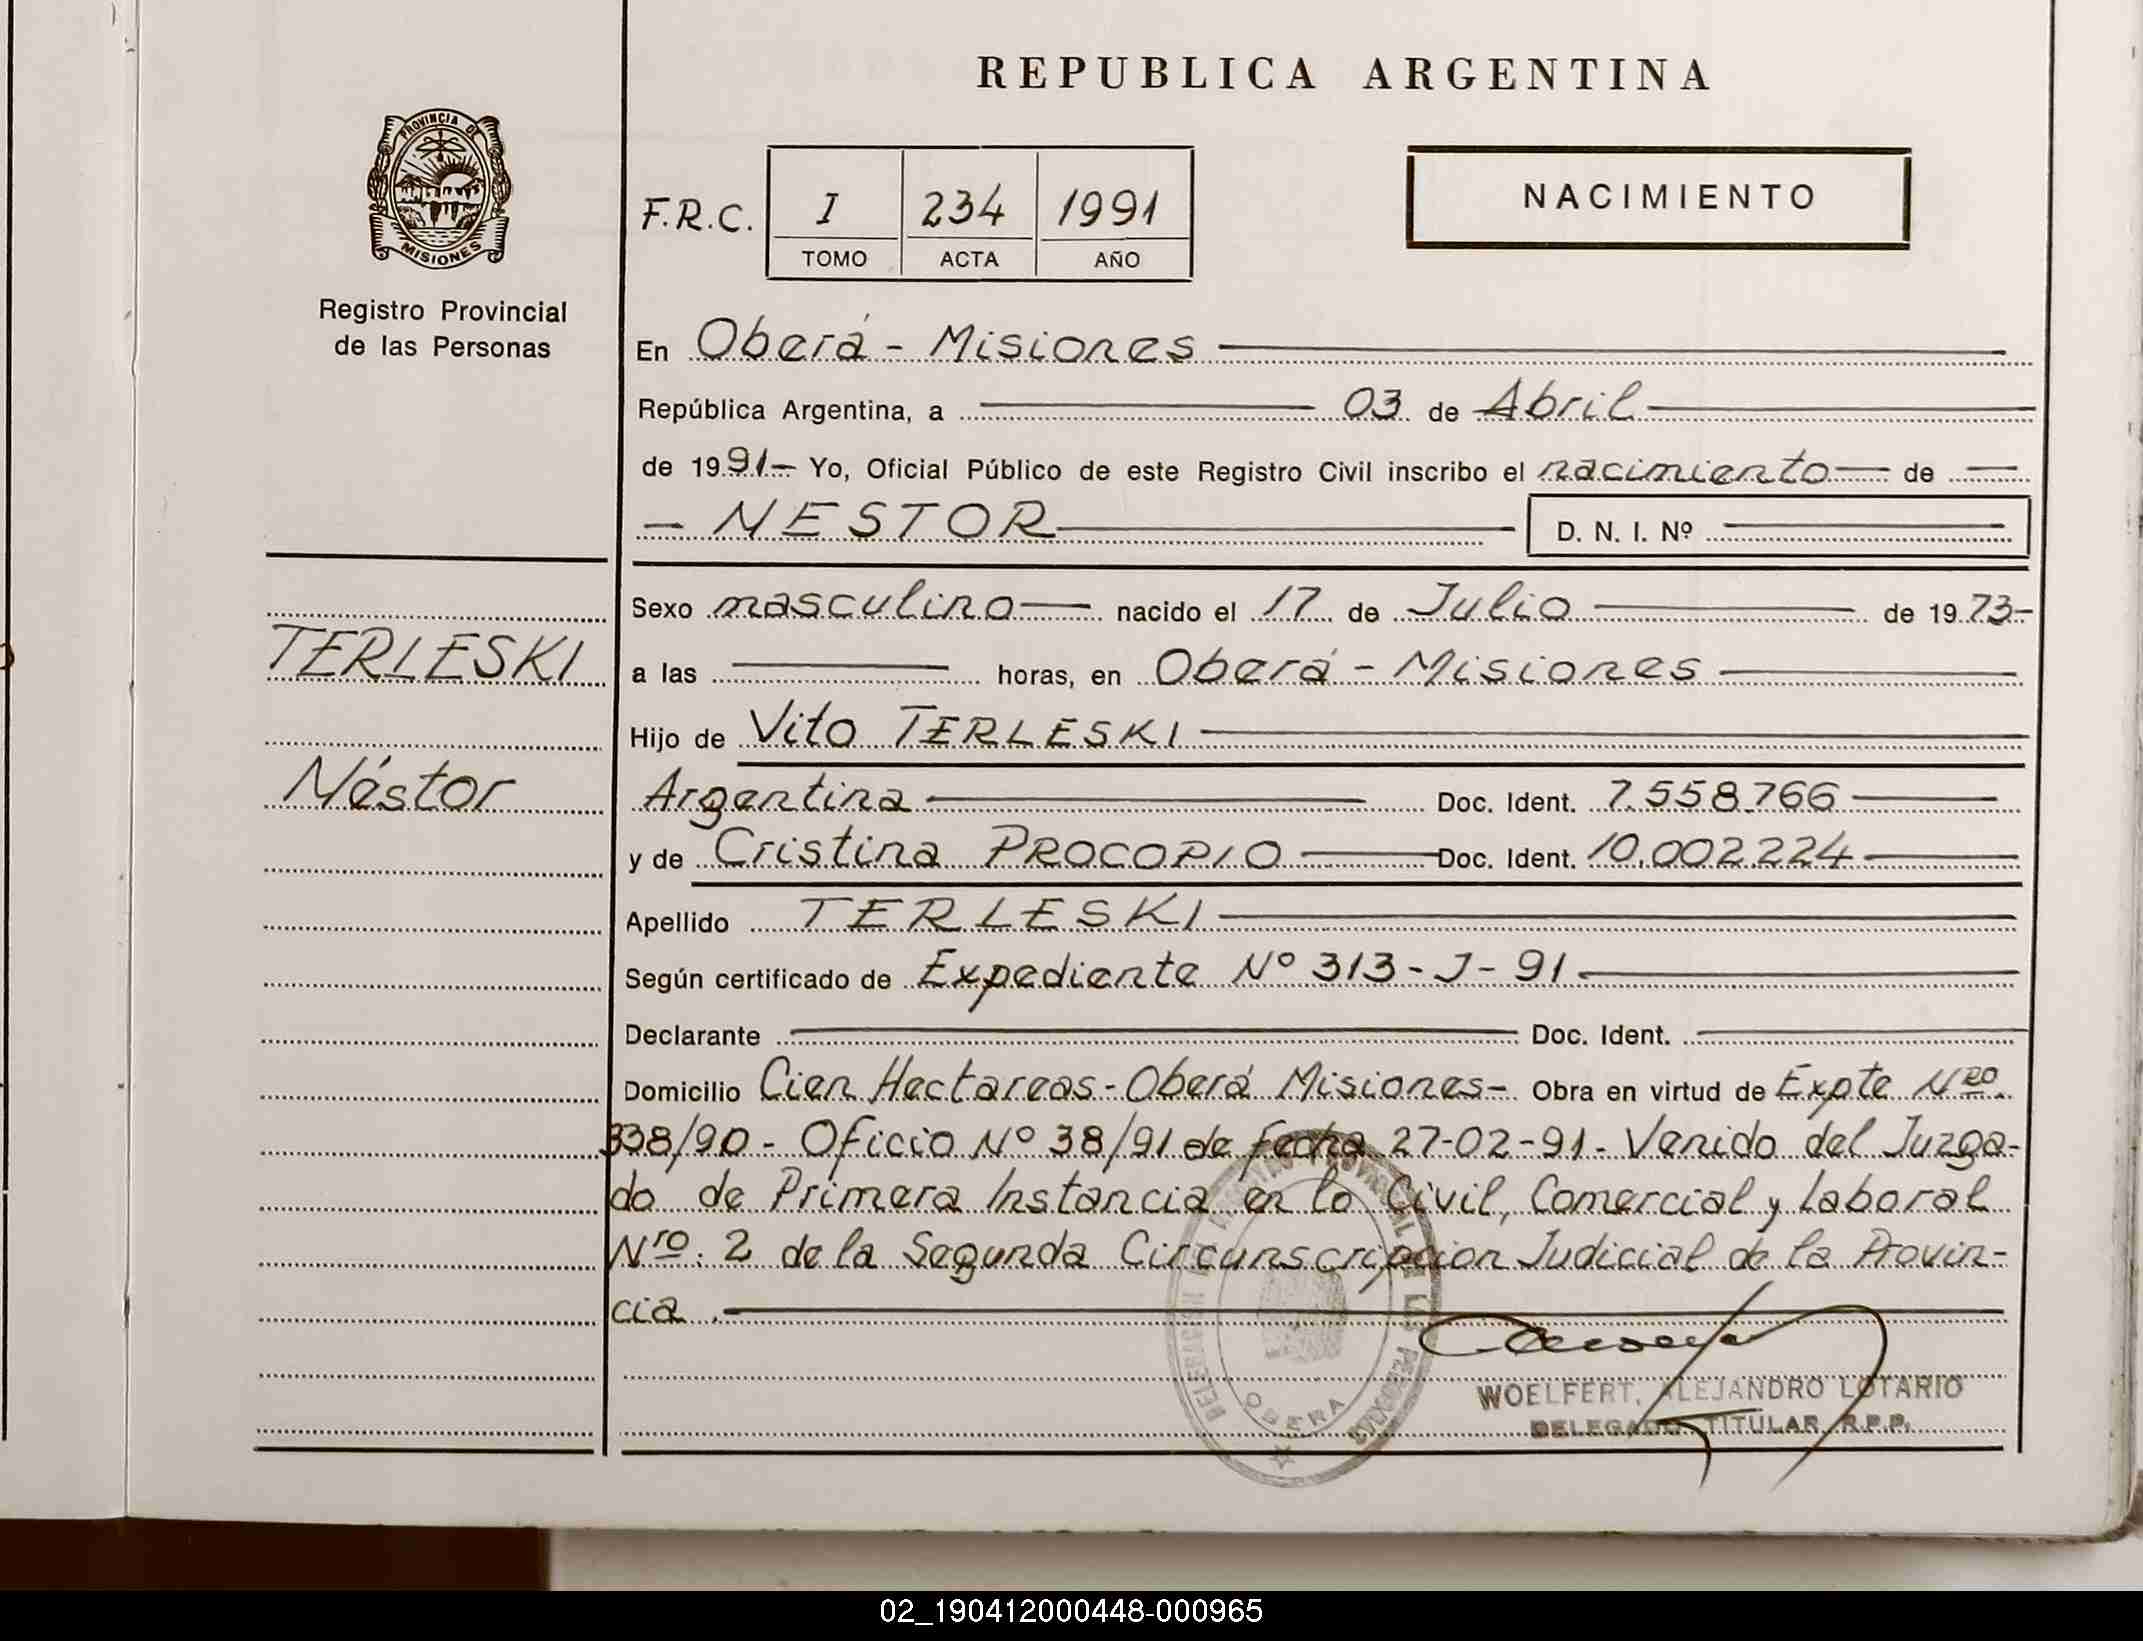 REPUBLICA ARGENTINA
PROVINCIA DE
MISIONES
Registro Provincial
de las Personas
F.R.C. I 234 1991
TOMO ACTA AÑO
NACIMIENTO
En Oberá - Misiones
República Argentina, a 03 de Abril
de 1991- Yo, Oficial Público de este Registro Civil inscribo el nacimiento de
- NESTOR D. N. I. Nº
Sexo masculino nacido el 17 de Julio de 1973-
TERLESKI
a las horas, en Oberá - Misiones
Hijo de Vito TERLESKI
Néstor
Argentina Doc. Ident. 7.558.766
y de Cristina PROCOPIO Doc. Ident. 10.002.224
Apellido TERLESKI
Según certificado de Expediente Nº 313-J-91
Declarante Doc. Ident.
Domicilio Cien Hectareas - Oberá Misiones- Obra en virtud de Expte Nro.
338/90 - Oficio Nº 38/91 de fecha 27-02-91. Venido del Juzga-
do de Primera Instancia en lo Civil, Comercial y Laboral
Nro. 2 de la Segunda Circunscripcion Judicial de la Provin-
cia.
DELEGACION DEL REGISTRO PROVINCIAL DE LAS PERSONAS
OBERA
WOELFERT, ALEJANDRO LOTARIO
DELEGADO TITULAR R.P.P.
02_190412000448-000965